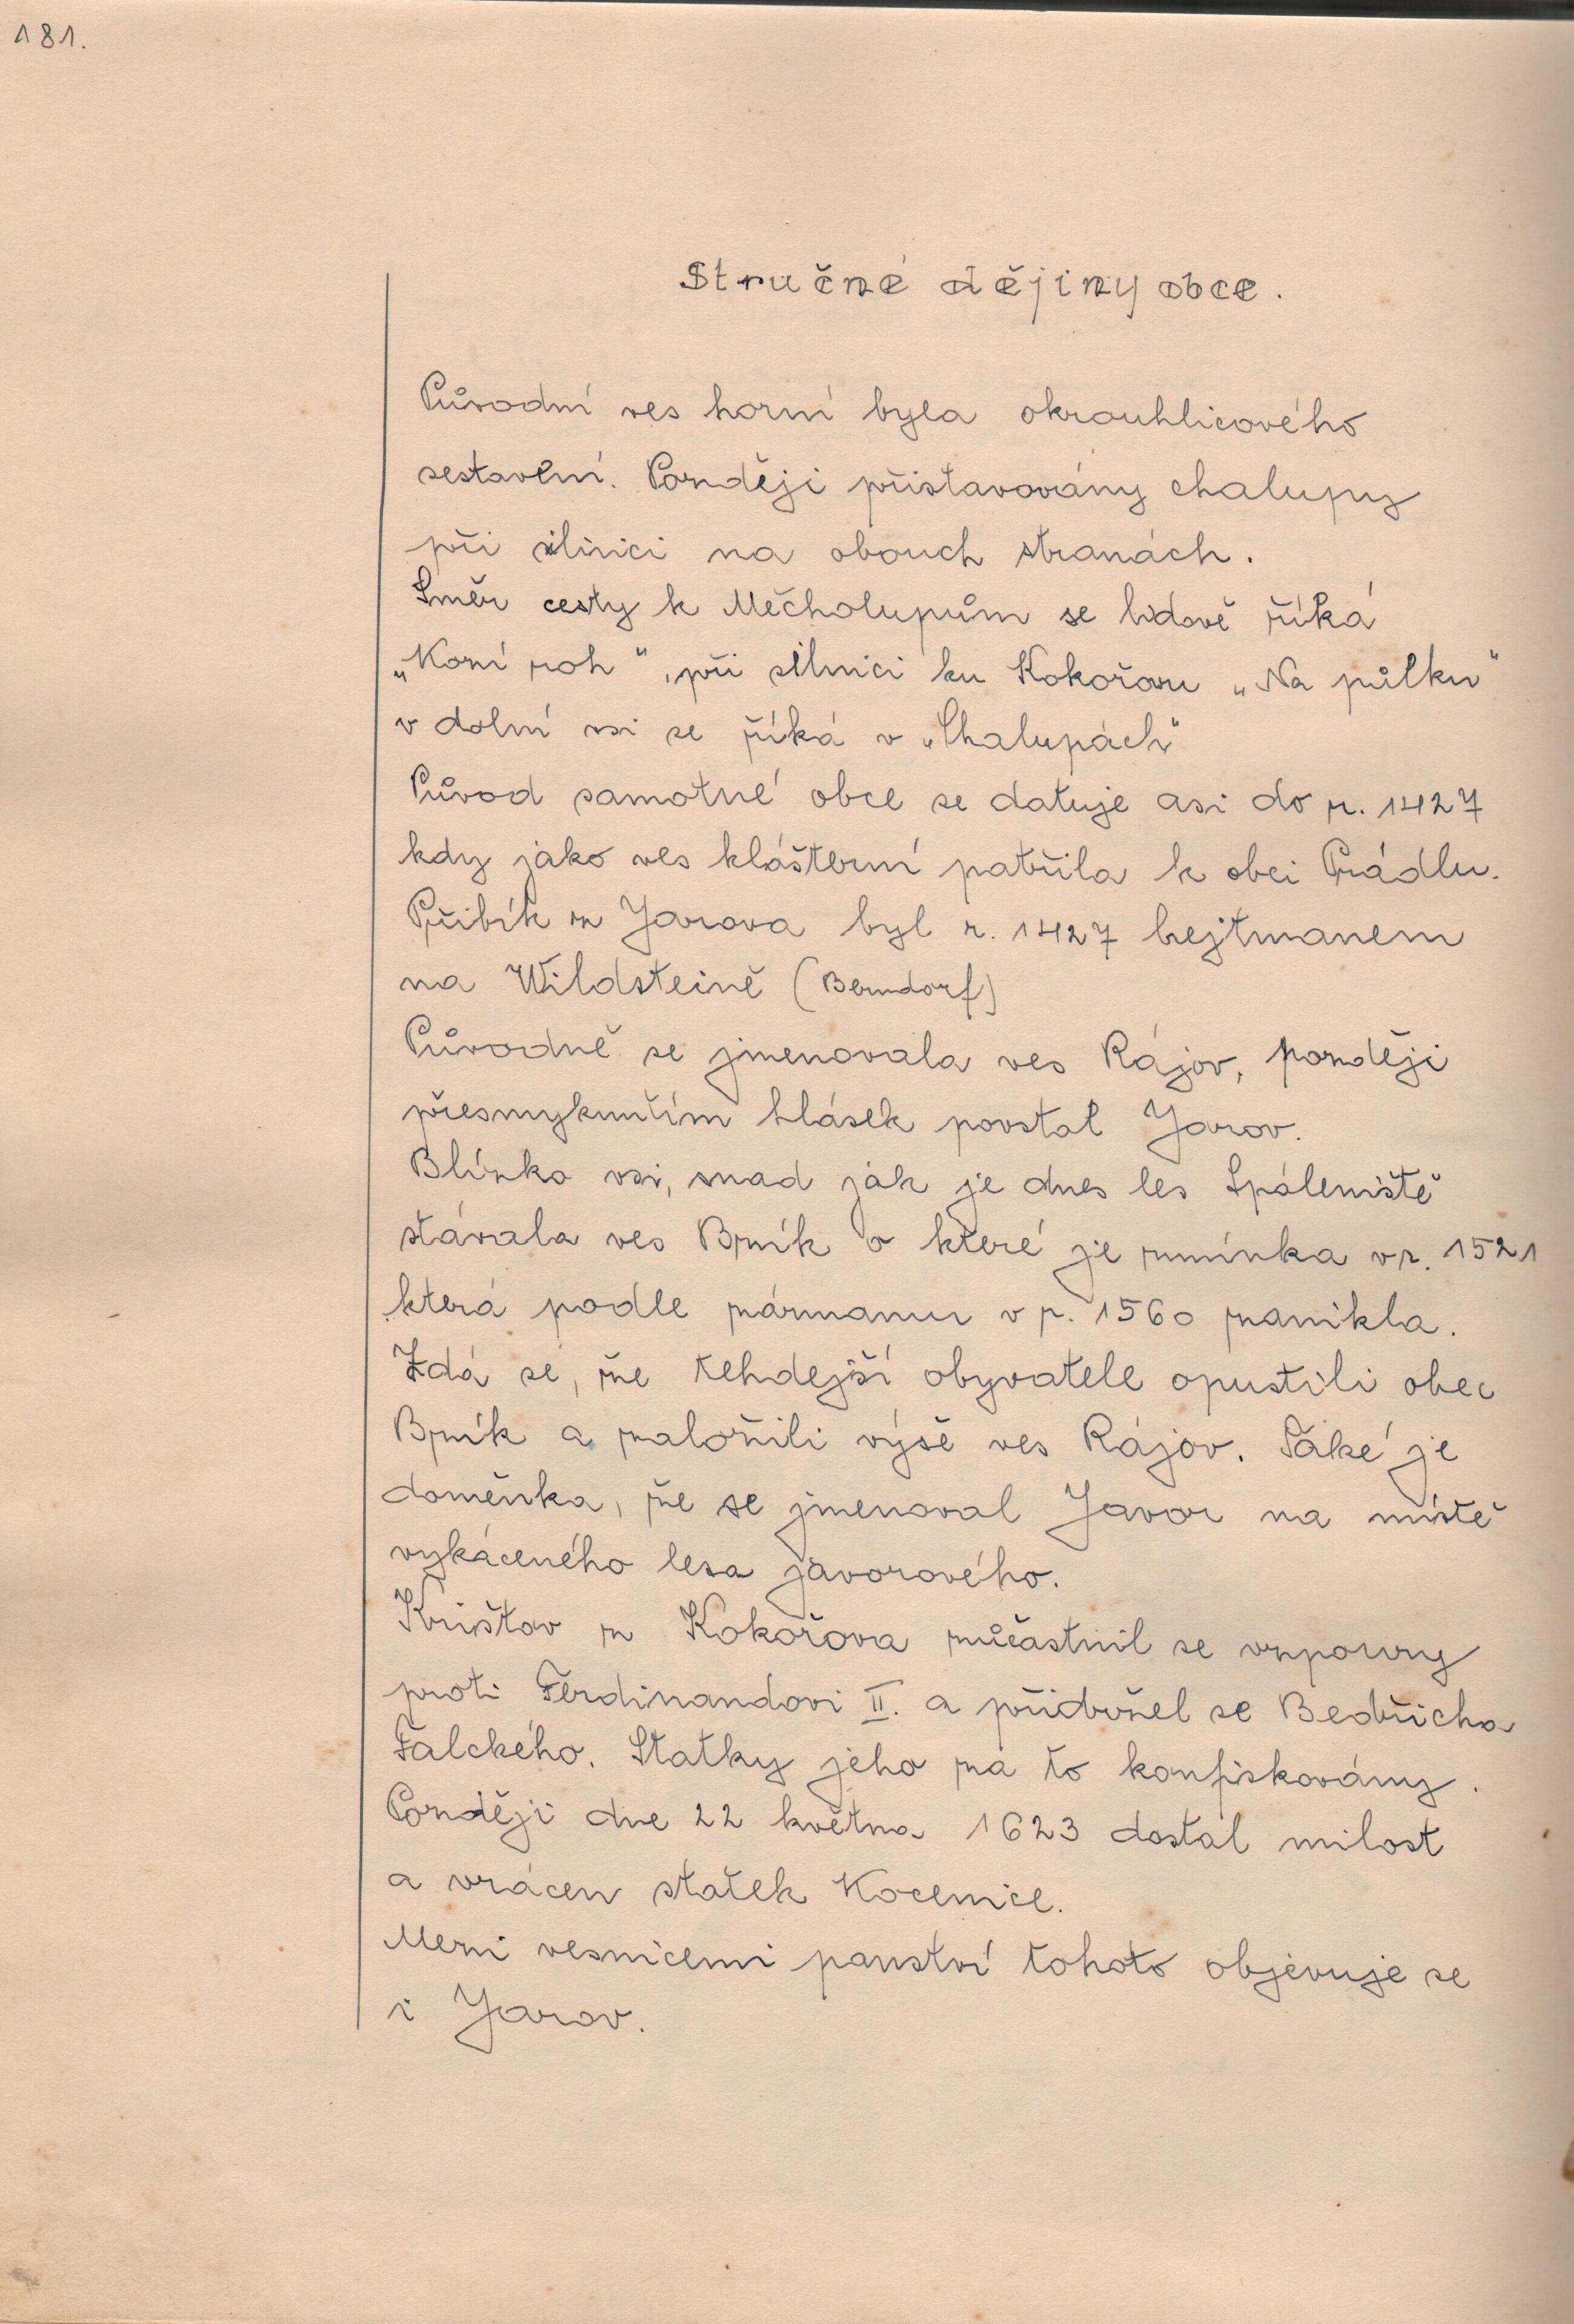 181.
Stručné dějiny obce.
Původní ves horní byla okrouhlicového
sestavění. Později přistavovány chalupy
při silnici na obouch stranách.
Směr cesty k Měcholupům se lidově říká
„Kozí roh", při silnici ku Kokořovu „Na půlku"
v dolní vsi se říká v „Chalupách"
Původ samotné obce se datuje asi do r. 1427
kdy jako ves klášterní patřila k obci Prádlu.
Přibík z Jarova byl r. 1427 hejtmanem
na Wildsteině (Berndorf)
Původně se jmenovala ves Rájov, později
přesmyknutím hlásek povstal Jarov.
Blízko vsi, snad jak je dnes les Spáleniště
stávala ves Bzík o které je zmínka v r. 1521
která podle záznamu v r. 1560 zanikla.
Zdá se, že tehdejší obyvatele opustili obec
Bzík a založili výše ves Rájov. Také je
doměnka, že se jmenoval Javor na místě
vykáceného lesa javorového.
Krištov z Kokořova zůčastnil se vzpoury
proti Ferdinandovi II. a přidržel se Bedřicha
Falckého. Statky jeho za to konfiskovány.
Později dne 22 května 1623 dostal milost
a vrácen statek Kocenice.
Mezi vesnicemi panství tohoto objevuje se
i Jarov.